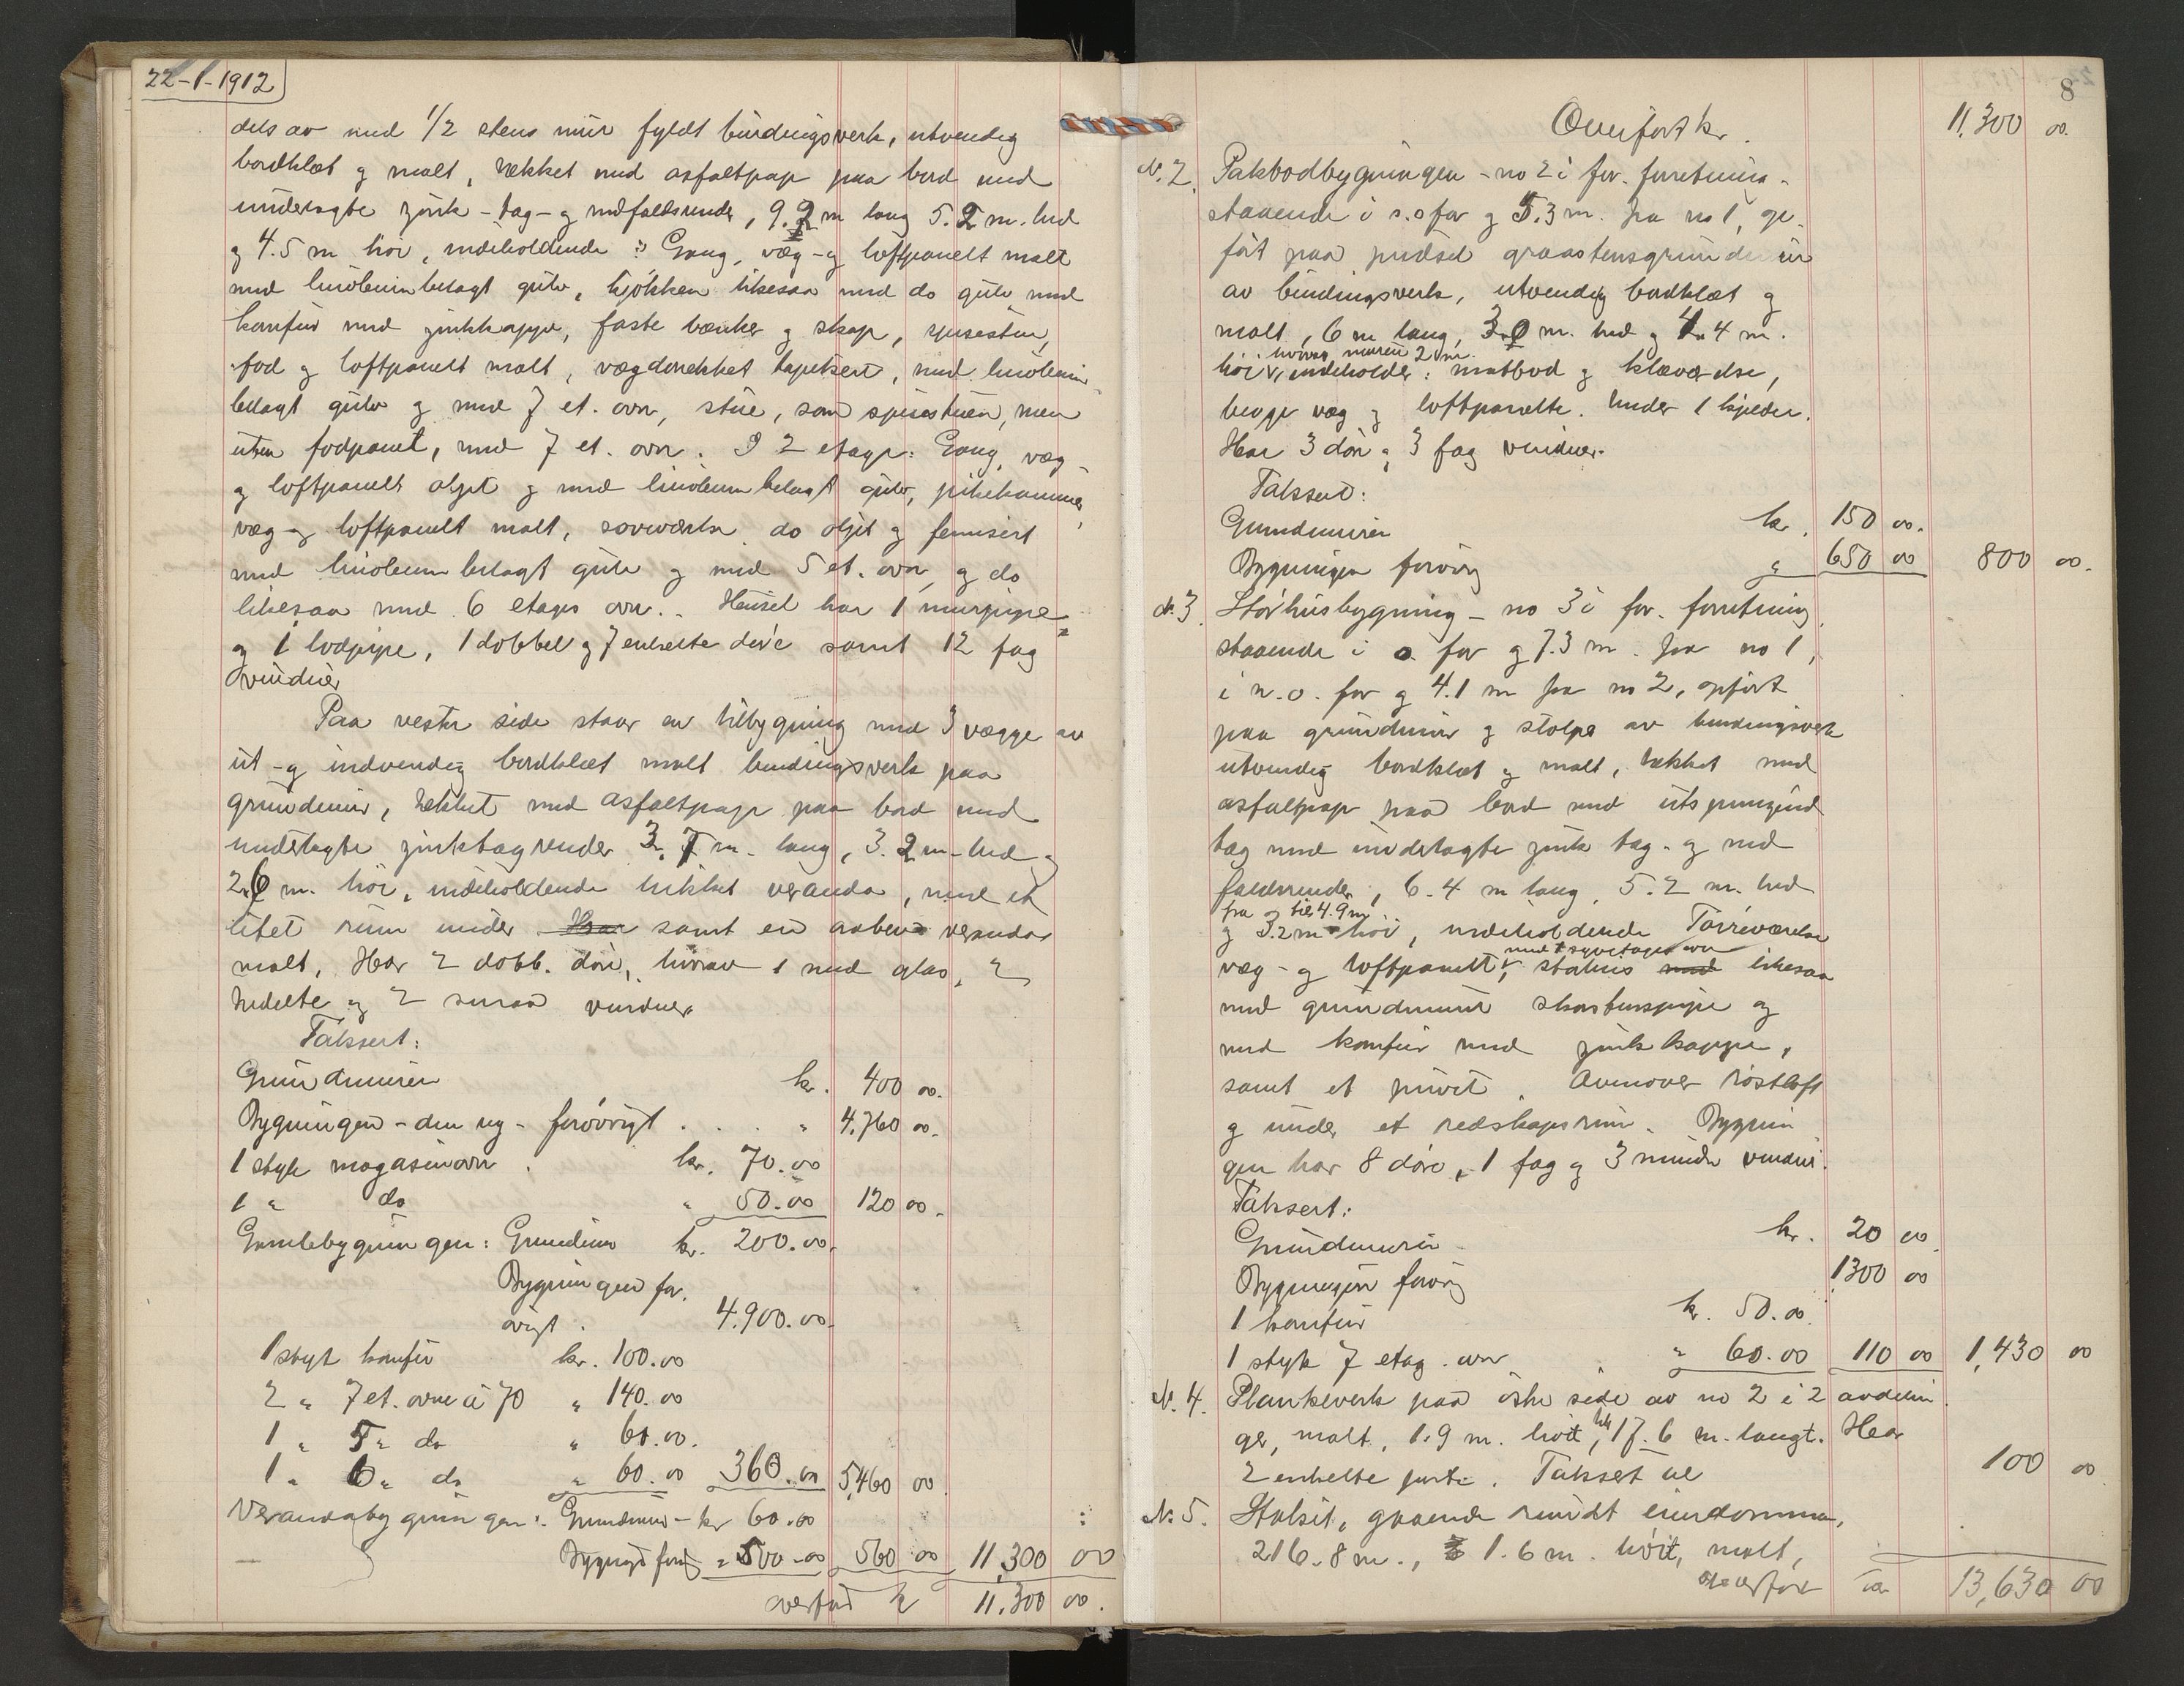 22-1-1912
dels av med 1/2 stens mur fyldt bindingsverk, utvendig
bordklæt og malt, tækket med asfaltpap paa bord med
underlagte zink-tag- og nedfaldsrender, 9.2 m lang 5.2 m. bred
og 4.5 m høi, indeholdende: Gang, væg- og loftpanelt malt
med linoleumbelagt gulv, kjøkken likesaa med do gulv med
komfur med zinkkappe, faste bænker og skap, spisestue,
fod og loftpanelt malt, væg dotrækket tapetsert, med linoleum
belagt gulv og med 7 et. ovn, stue, som spisestuen, men
uten fodpanel, med 7 et. ovn. I 2 etage: Gang, væg-
og loftpanelt oljet og med linoleumbelagt gulv, pikekammer,
væg- og loftpanelt malt, soveværelse do oljet og fernisert
med linoleumbelagt gulv og med 5 et. ovn, og do
likesaa med 6 etages ovn. Huset har 1 murpipe
og 1 lodpipe, 1 dobbel og 7 enkelte døre samt 12 fag
vinduer
Paa vestre side staar en tilbygning med 3 vægge av
ut- og indvendig bordklæt malt bindingsverk paa
grundmur, tækket med asfaltpap paa bord med
underlagte zinktagrender 3.7 m. lang, 3.2 m bred og
2.6 m. høi, indeholdende lukket veranda, med et
litet rum under Har samt en aaben veranda
malt. Har 2 dobb. døre, hvorav 1 med glas, 2
tredelte og 2 smaa vinduer.
Taksert:
Grundmuren kr. 400 00.
Bygningen - den ny - forøvrigt . . . " 4.760 00.
1 styk magasinovn . kr. 70.00
1 " do " 50.00 120 00.
Gamlebygningen: Grundmur kr. 200.00.
Bygningen for.
øvrigt . 4.900.00.
1 styk komfur kr. 100.00
2 " 7 et. ovne à 70 " 140.00
1 " 5 " do " 60.00.
1 " 6 " do " 60.00 360.00 5,460 00.
Verandabygningen: Grundmur - kr 60.00
Bygngd forø " 500.00 560 00 11,300 00
overført kr 11.300 00.
8
Overført kr. 11,300 00.
N. 2. Pakbodbygningen - no 2 i før. forretning -
staaende i s.o for og 5.3 m. fra no 1, op-
ført paa pudset graastensgrundmur
av bindingsverk, utvendig bordklæt og
malt, 6 m lang, 3.0 m. bred og 4.4 m.
hvorav muren 2 m.
høi, indeholder: matbod og klæværelse,
begge væg og loftpanelte. Under 1 kjelder.
Har 3 døre og 3 fag vinduer.
Taksert:
Grundmuren kr. 150 00.
Bygningen forøvrig " 650 00 800 00.
N. 3. Størhusbygning - no 3 i før. forretning
staaende i o. for og 7.3 m. fra no 1,
i n.o. for og 4.1 m fra no 2, opført
paa grundmur og stolper av bindingsverk
utvendig bordklæt og malt, tækket med
asfaltpap paa bord med utspringend
tag med underlagte zink tag- og ned
faldsrender, 6.4 m lang, 5.2 m. bred
fra og til 4.9 m
og 3.2 m høi, indeholdende Tørreværelse
med 1 syvetages ovn
væg- og loftpanelt, stakus med likesaa
med grundmuret skorstenspipe og
med komfur med zinkkappe,
samt et privet. Ovenover røstloft
og under et redskapsrum. Bygnin
gen har 8 døre, 1 fag og 3 mindre vinduer.
Taksert:
Grundmuren kr. 20 00.
Bygningen forøvrig 1,300 00
1 komfur kr. 50.00.
1 styk 7 etag. ovn " 60.00 110 00 1,430 00
N. 4. Plankeverk paa østre side av no 2 i 2 avdelin
ger, malt, 1.9 m. høit, 17.6 m. langt. Har
2 enkelte porte. Taksert til 100 00
N. 5. Stakit, gaaende rundt eiendommen,
216.8 m., 1.6 m. høit, malt,
overført kr 13,630 00